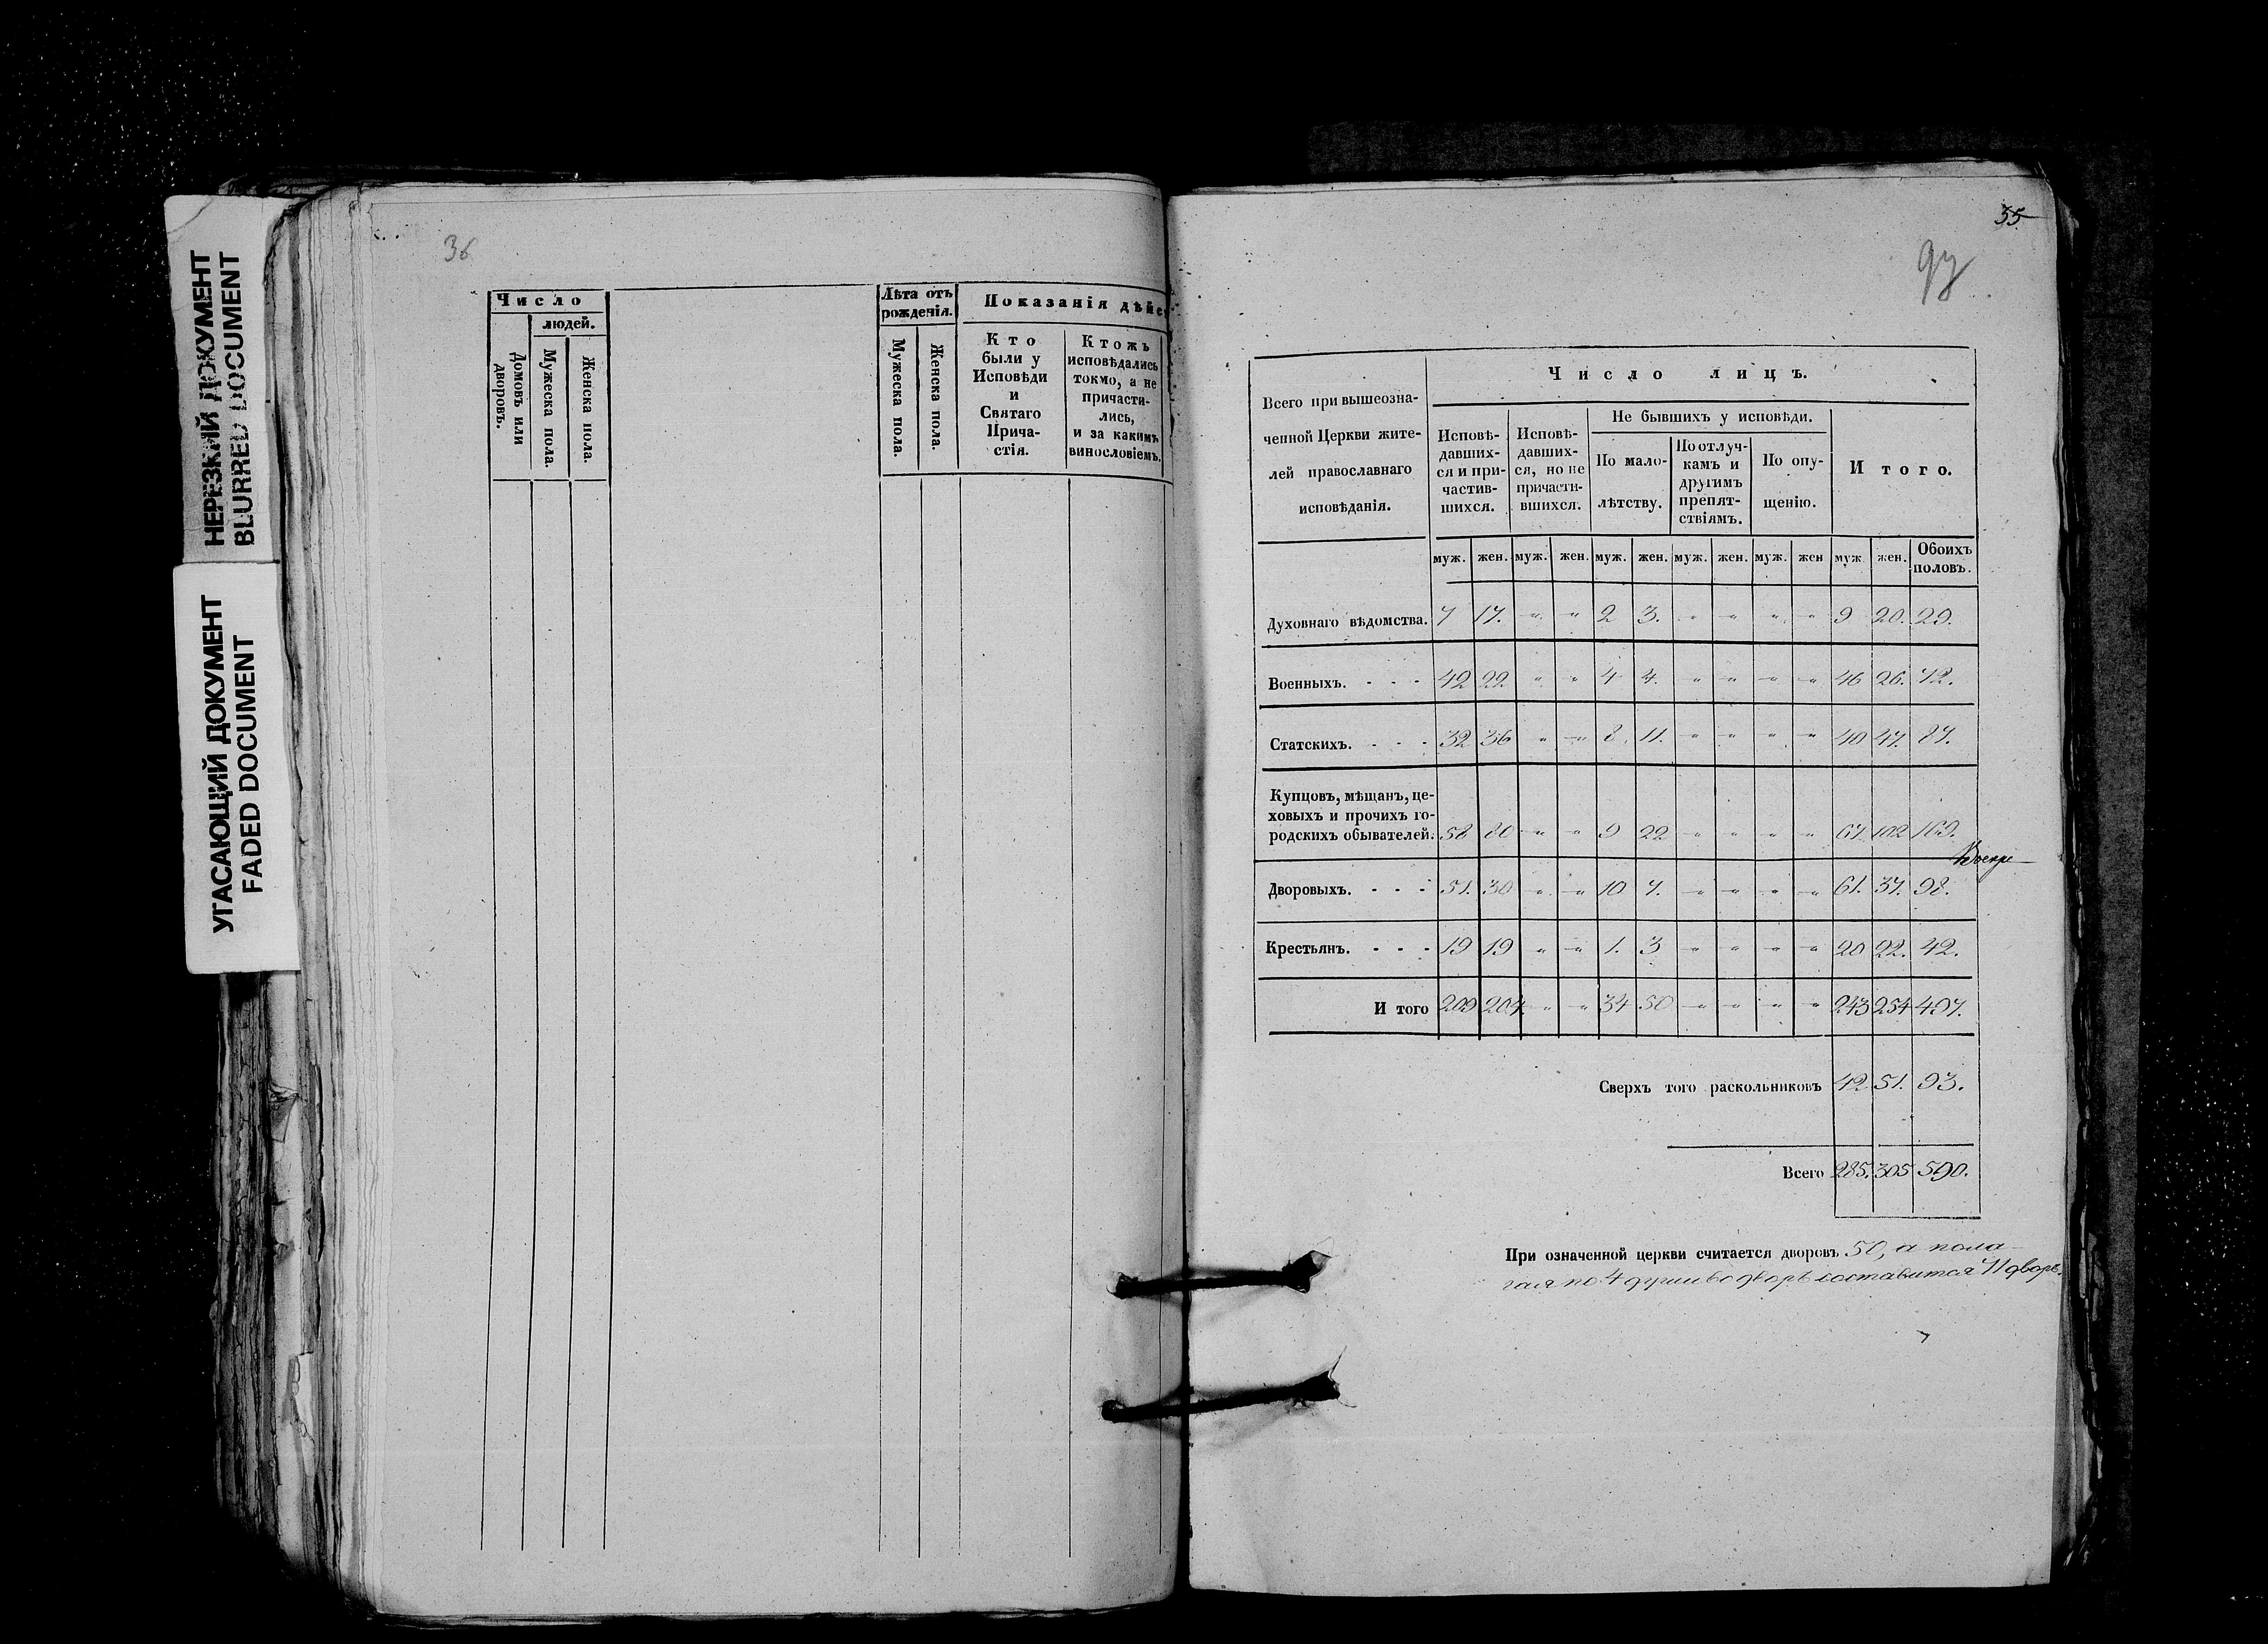 НЕРЕЗКИЙ ДОКУМЕНТ
BLURRED DOCUMENT
УГАСАЮЩИЙ ДОКУМЕНТ
FADED DOCUMENT
36
Число
людей.
Домовъ или дворовъ.
Мужеска пола.
Женска пола.
Лѣта отъ рожденія.
Мужеска пола.
Женска пола.
Показанія дѣйс
Кто были у Исповѣди и Святаго Причастія.
Ктожъ исповѣдались токмо, а не причастились, и за какимъ винословіемъ.
35
Всего при вышеозначенной Церкви жителей православнаго исповѣданія.
Число лицъ.
Исповѣдавшихся и причастившихся.
Исповѣдавшихся, но не причастившихся.
Не бывшихъ у исповѣди.
По малолѣтству.
По отлучкамъ и другимъ препятствіямъ.
По опущенію.
И того.
муж. жен. муж. жен. муж. жен. муж. жен. муж. жен муж. жен. Обоихъ половъ.
Духовнаго вѣдомства. 7 17. " " 2 3. " " " " 9 20. 29.
Военныхъ. - - - 42 22 " " 4 4. " " " " 46 26. 72.
Статскихъ. - - - 32 36 " " 8. 11. " " " " 40 47. 87.
Купцовъ, мѣщанъ, цеховыхъ и прочихъ городскихъ обывателей. 58 80 " " 9 22 " " " " 67. 102 169.
Дворовыхъ. - - - 51. 30 " " 10 7. " " " " 61. 37. 98.
Крестьянъ. - - - 19 19 " " 1. 3 " " " " 20 22. 42.
И того 209 204. " " 34 50 " " " " 243 254 497.
Сверхъ того раскольниковъ 42. 51. 93.
Всего 285. 305 590.
При означенной церкви считается дворовъ 50, а пола-
гая по 4 души во дворъ составится 71 дворъ.